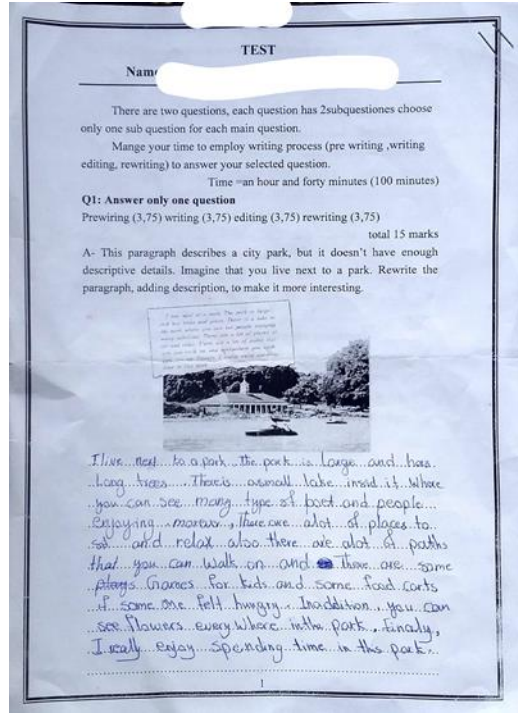 TEST
Name
There are two questions, each question has 2subquestiones choose
only one sub question for each main question.
Mange your time to employ writing process (pre writing ,writing
editing, rewriting) to answer your selected question.
Time =an hour and forty minutes (100 minutes)
Q1: Answer only one question
Prewiring (3,75) writing (3,75) editing (3,75) rewriting (3,75)
total 15 marks
A- This paragraph describes a city park, but it doesn't have enough
descriptive details. Imagine that you live next to a park. Rewrite the
paragraph, adding description, to make it more interesting.
I live next to a park. The park is large and has
Long trees. There is a small lake insid it. Where
you can see many type of boet and people
enjoying. morever, There are alot of places to
and relax also there are alot of paths
that you can walk on and there are some
Games for kids and some food carts
if some one felt hungry. In addition, you can
see flowers every where in the park. Finaly,
I really enjoy spending time in this park.
1